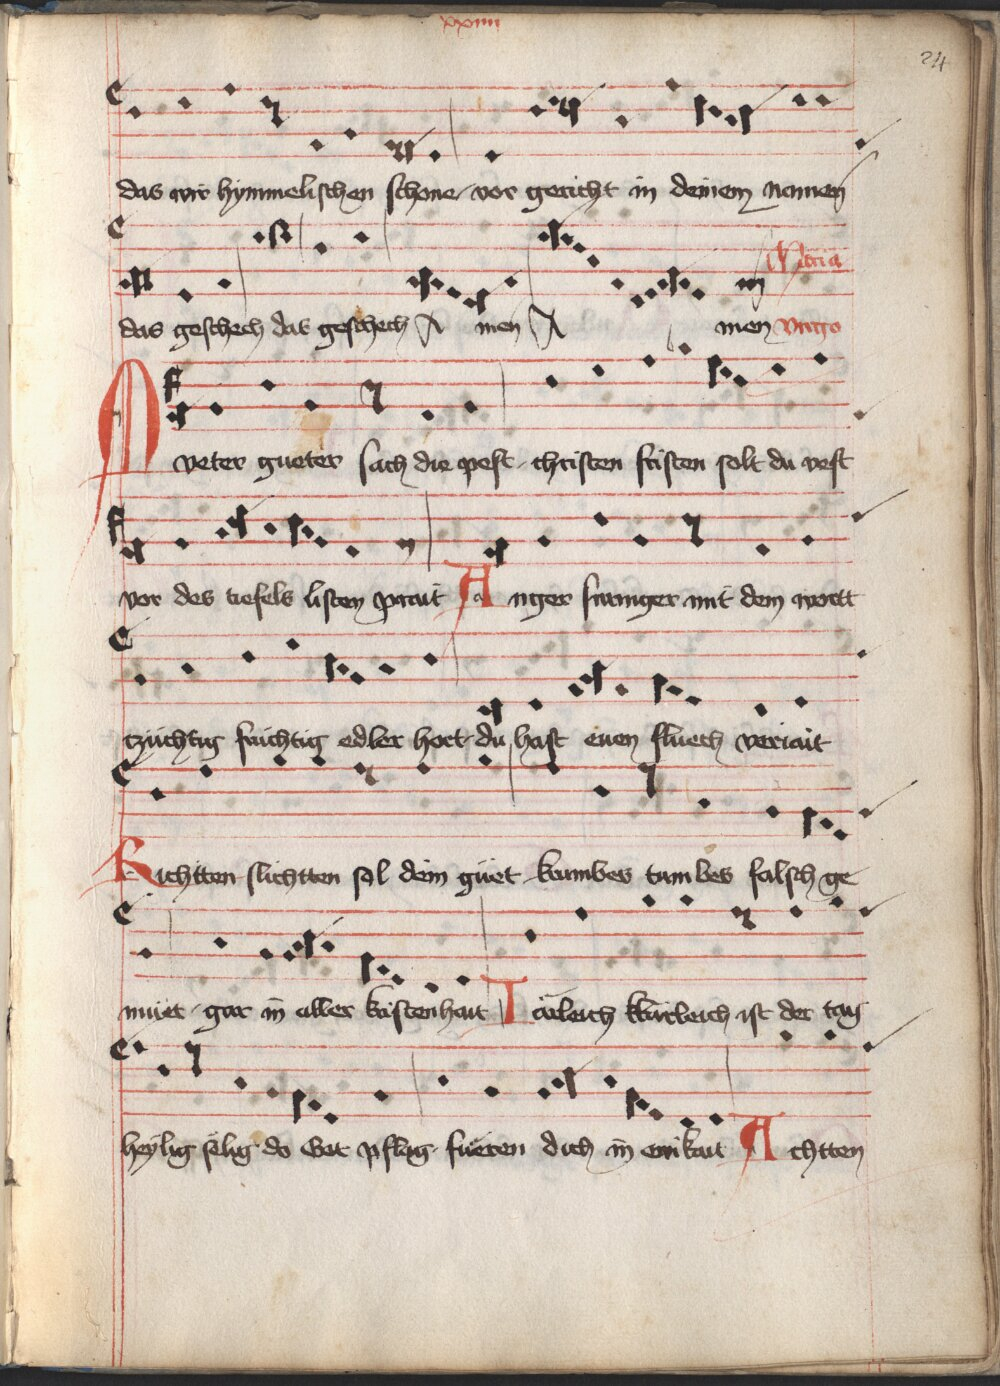 xxiiii
24
das wir hymmelischen schone vor gericht in deinem namen
Maria
das geschech das geschech A men A men virgo
Mveter gueter sach die pest christen fristen solt du vest
vor des tiefels listen prait Anger swanger mit dem wortt
tzuchtig fruchtig edler hort du hast euen fluech veriait
Richtten slichtten sol dein güet krumbes tumbes falsch ge
müet gar in aller kristenhait Iärleich klärleich ist der tag
heylig selig do Got pflag fueren dich in ewikait Achtten